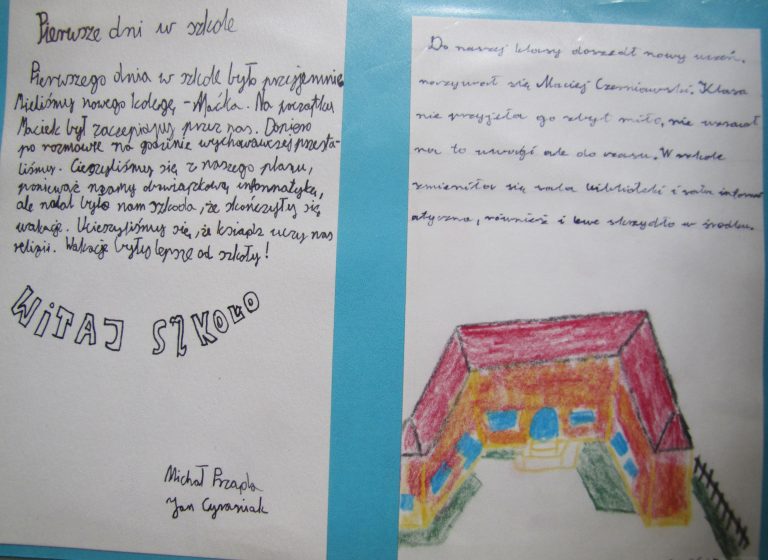 Pierwsze dni w szkole
Pierwszego dnia w szkole było przyjemnie.
Mieliśmy nowego kolegę - Maćka. Na początku
Maciek był zaczepiany przez nas. Dopiero
po rozmowie na godzinie wychowawczej przesta-
liśmy. Cieszyliśmy się z naszego planu,
ponieważ mamy dwie informatyki,
ale nadal było nam szkoda, że skończyły się
wakacje. Ucieszyliśmy się, że ksiądz uczy nas
religii. Wakacje były lepsze od szkoły!
WITAJ SZKOŁO
Michał
Jan
Do naszej klasy doszedł nowy uczeń.
nazywał się Maciej Czerniawski. Klasa
nie przyjęła go zbyt miło, nie uważał
na to uwagi ale do czasu. W szkole
zmieniła się sala biblioteki i sala inform
atyczna, również i lewe skrzydło w środku.